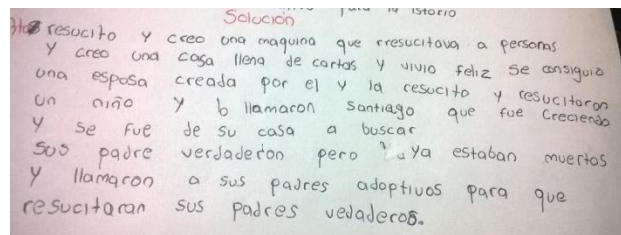 para la istorio
Solución
resucito y creo una maquina que rresucitava a personas
y creo una casa llena de cartas y vivio feliz se consiguio
una esposa creada por el y la resucito y resucitaron
un niño y lo llamaron Santiago que fue creciendo
y se fue de su casa a buscar
sus padre verdaderon pero ya estaban muertos
y llamaron a sus padres adoptivos para que
resucitaran sus padres vedaderos.